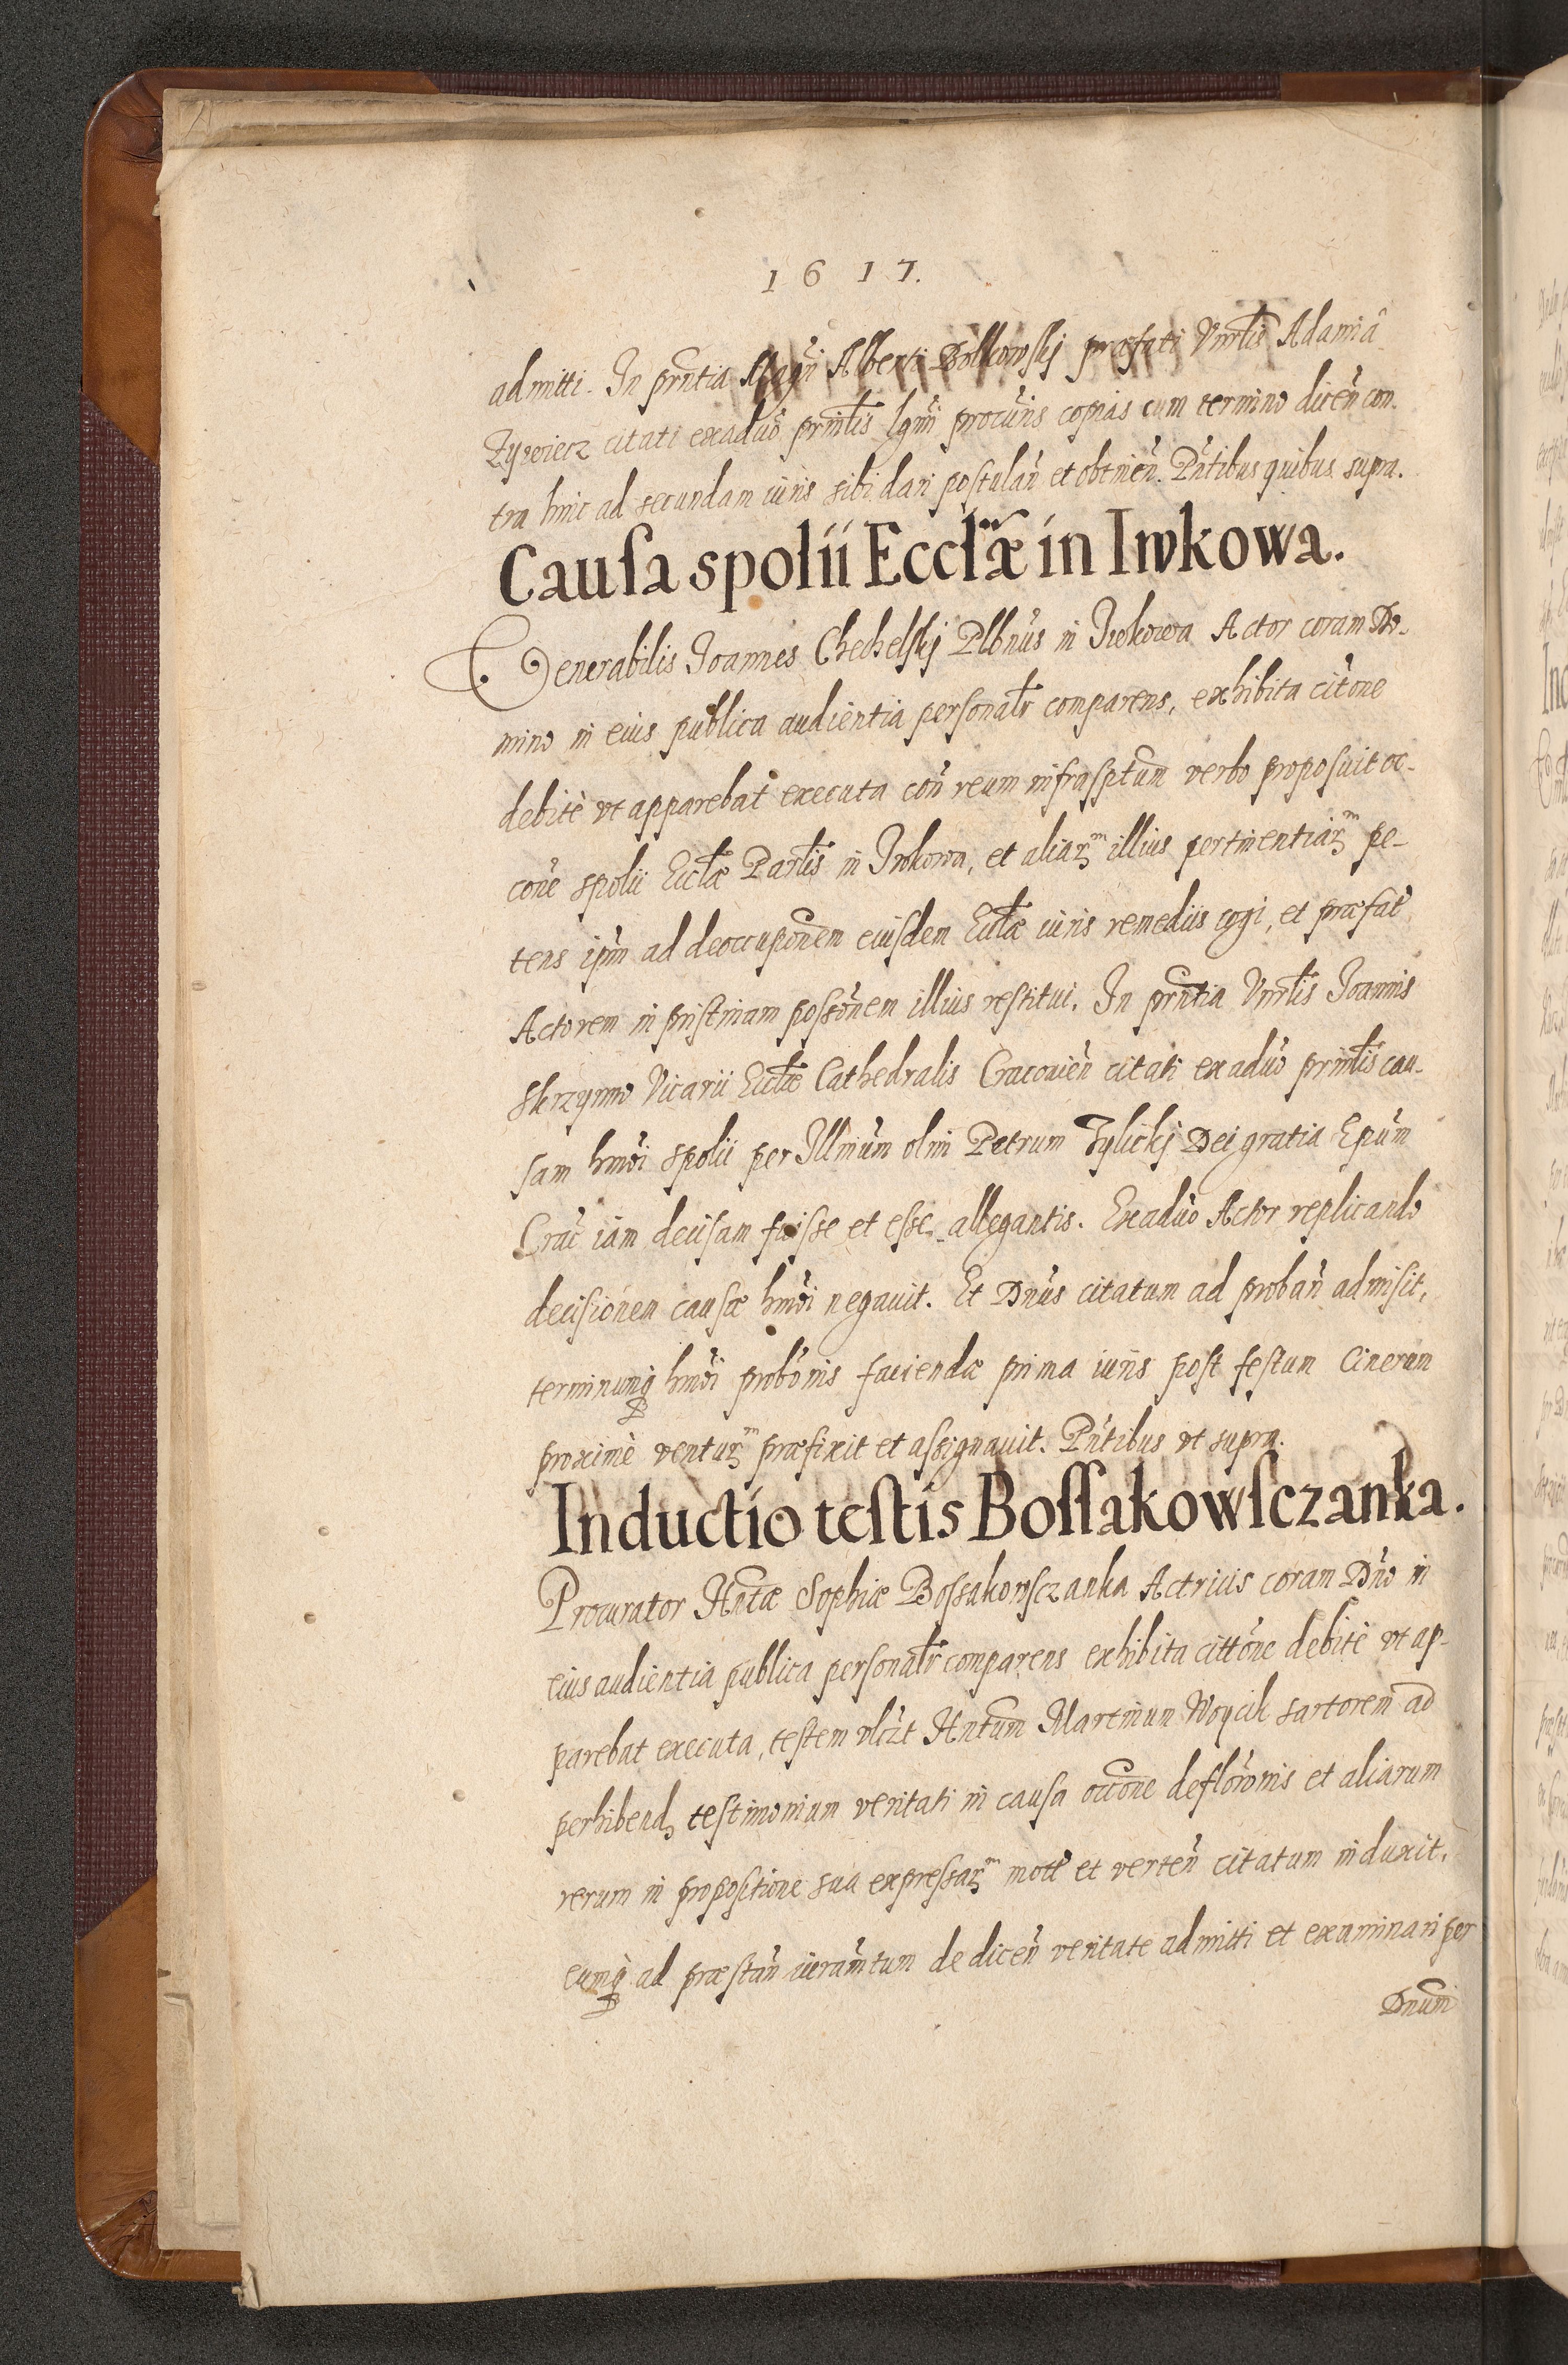 1617.
admitti. In prntia Magri Alberti Bolkowskj præfati Vnrlis Adami â
Zywiecz citati exaduo prinlis lgmi procuris copias cum termino dicen con-
tra hinc ad secundam iuris sibi dari postulan et obtinen. Pntibus quibus supra.
Causa spolii Ecclæ in Iwkowa.
Venerabilis Joannes Chechelskj Plbnus in Iwkowa Actor coram Do-
mino in eius publica audientia personalr comparens, exhibita citone
debitè vt apparebat executa con reum infrasptum verbo proposuit oc-
cone spolii Ecclæ Parlis in Iwkowa, et aliarm illius pertinentiarm pe-
tens ipm ad deoccuponem eiusdem Ecclæ iuris remediis cogi, et præfat
Actorem in pristinam possonem illius restitui. In prntia Vnrlis Joannis
Skrzynno Vicarii Ecclæ Cathedralis Cracouien citati exaduo prinlis cau-
sam hmoi spolii per Illmum olim Petrum Tylickj Dei gratia Epum
Crac iam decisam fuisse et esse allegantis. Exaduo Actor replicando
decisionem causæ hmoi negauit. Et Dnus citatum ad proban admisit,
terminumq hmoi probonis faciendæ prima iuris post festum Cinerum
proximè venturm præfixit et assignauit. Pntibus vt supra.
Inductio testis Bossakowsczanka.
Procurator Hntæ Sophiæ Bossakowsczanka Actricis coram Dno in
eius audientia publica personalr comparens exhibita cittone debitè vt ap-
parebat executa, testem vlczt Hntum Martinum Woycik sartorem ad
perhibend testimonium veritati in causa occone defloronis et aliarum
rerum in propositione sua expressarm mote et verten citatum induxit,
eumq ad præstan iuramtum de dicen veritate admitti et examinari per
Dnum